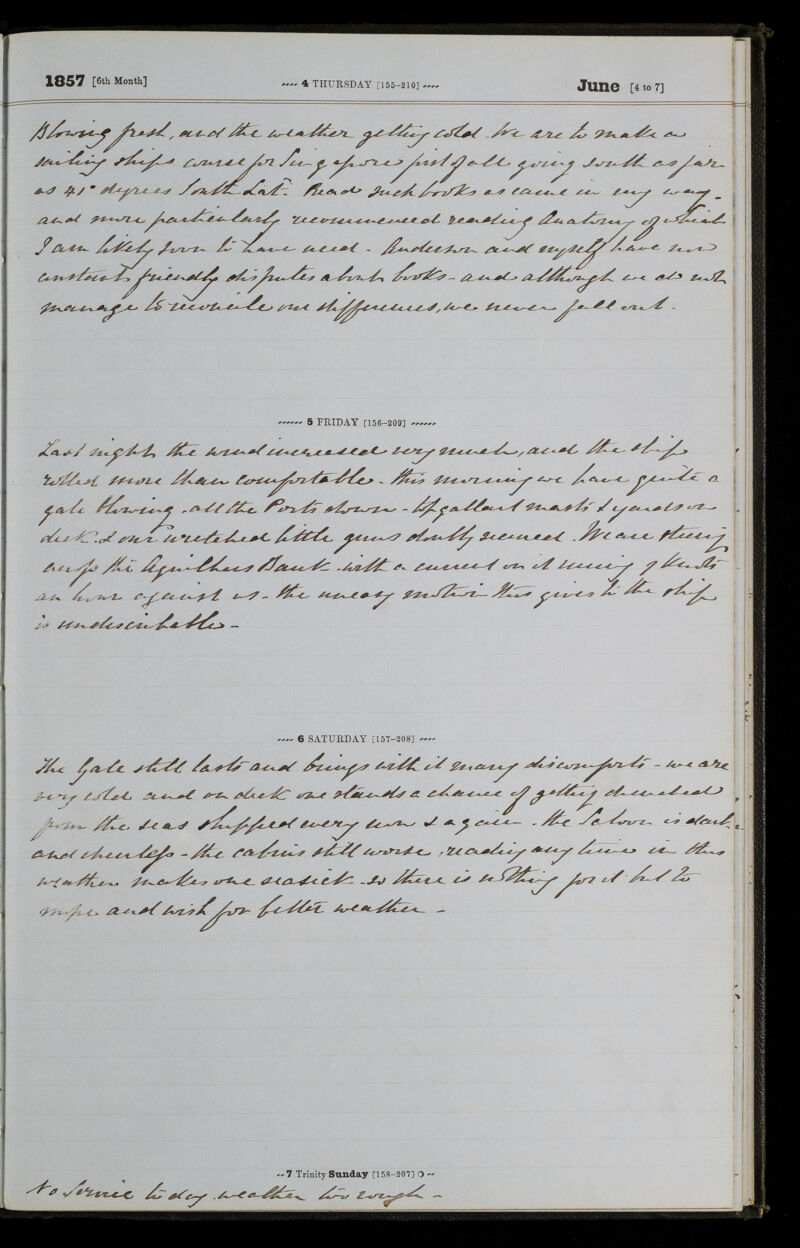 1857 [6th Month] 4 THURSDAY [155-210] June [4 to 7]
Blowing fresh, and the weather getting cold. We are to make a
sailing ships course for Singapore first of all going South as far
as 41° degrees South Lat. Read such books as came in my way -
and more particularly recommenced reading Anatomy of which
I am likely soon to have need - Anderson and myself have now
constant friendly disputes about books - and although we do not
manage to reconcile our differences, we never fall out.
5 FRIDAY [156-209]
Last night the wind increased very much, and the ship
rolled more than comfortable - this morning we have quite a
gale blowing - all the Ports down - top gallant masts & yards on
deck. & our wretched little guns doubly secured. We are steering
across the Agulhas Bank - with a current on it running 7 knots
an hour against us - the uneasy motion this gives to the ship
is undescribable -
6 SATURDAY [157-208]
The Gale still lasts and brings with it many discomforts - we are
very cold and on deck one stands a chance of getting drenched
from the seas shipped every now & again. The Saloon is dark
and cheerless - the cabins still worse, reading any time in this
weather makes one seasick - so there is nothing for it but to
mope and wish for better weather -
7 Trinity Sunday [158-207]
No Service to day weather too rough -